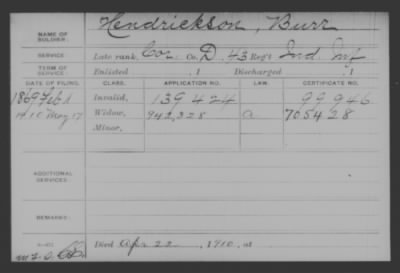 NAME OF SOLDIER: Hendrickson, Burr
SERVICE: Late rank, Cor Co. D, 43 Reg't Ind. Inf
TERM OF SERVICE: Enlisted , 1 Discharged , 1
DATE OF FILING. CLASS. APPLICATION NO. LAW. CERTIFICATE NO.
1869 Feb 1 Invalid, 139 424 99 946
1910 May 17 Widow, 942,328 a 705428
Minor,
ADDITIONAL SERVICES:
REMARKS:
Died Apr 22, 1910, at